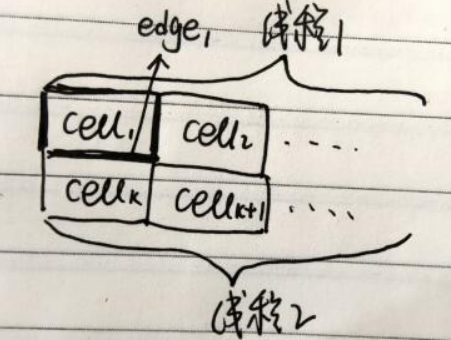 edge₁ 线程1
cell₁ cell₂ .....
cellₖ cellₖ₊₁ ....
线程2